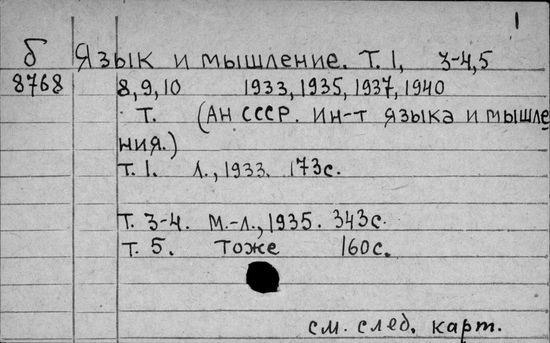 1
б Язык и мышление. Т. 1, 3-4, 5
8768 8, 9, 10 1933, 1935, 1937, 1940
т. (АН СССР. Ин-т языка и мышле
ния.)
Т. 1. Л., 1933. 173с.
Т. 3-4. М.-Л., 1935. 343с.
Т. 5. Тоже 160с.
см. след. карт.